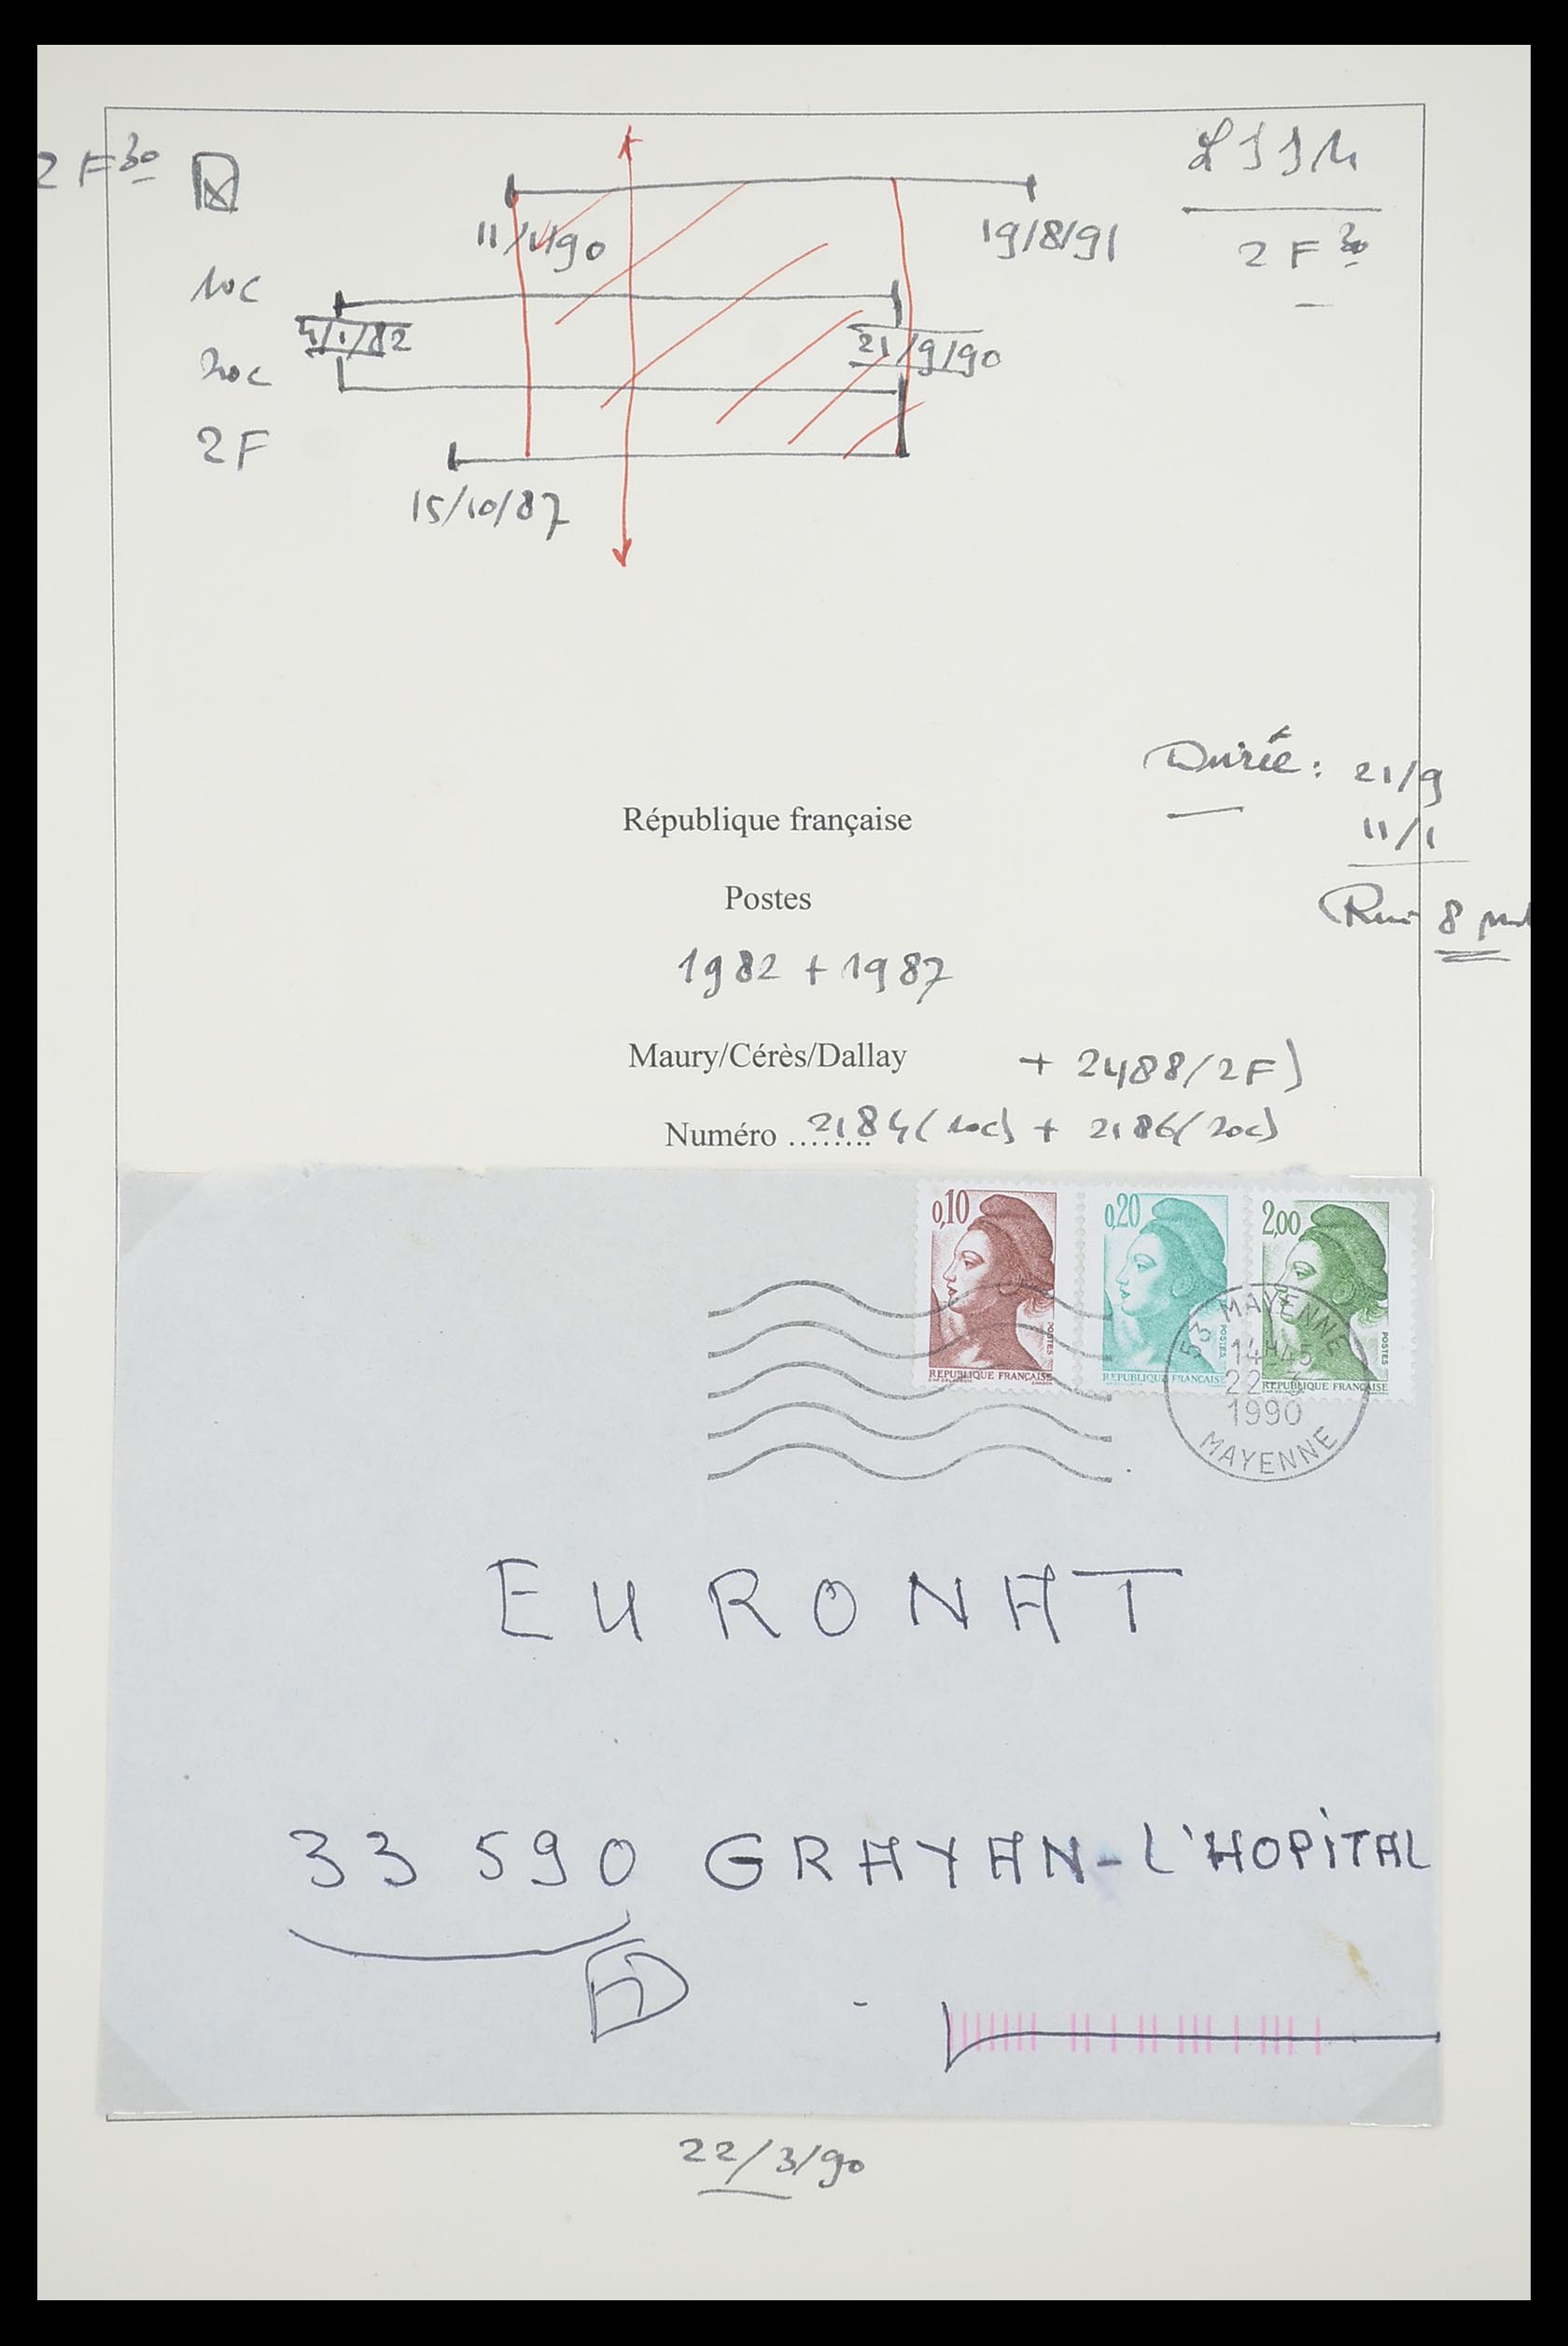 2 F 30
LSSM
2 F 30
11/1/90
19/8/91
10c
4/1/82
21/9/90
20c
2F
15/10/87
Durée : 21/9
11/1
République française
Postes
8
1982 + 1987
Maury/Cérès/Dallay + 2488/2F)
Numéro ........ 2184(10c) + 2186(20c)
0,10
0,20
2,00
POSTES
POSTES
POSTES
REPUBLIQUE FRANÇAISE
REPUBLIQUE FRANÇAISE
REPUBLIQUE FRANÇAISE
53 MAYENNE
14H45
22-3
1990
MAYENNE
EURONAT
33 590 GRAYAN-L'HOPITAL
22/3/90